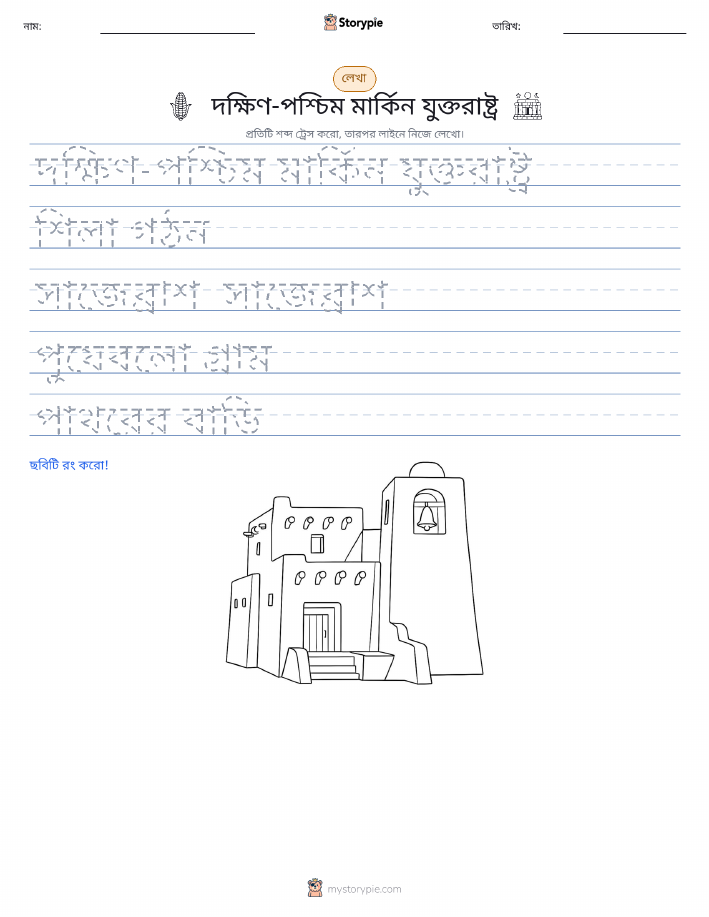 নাম:
Storypie
তারিখ:
লেখা
দক্ষিণ-পশ্চিম মার্কিন যুক্তরাষ্ট্র
প্রতিটি শব্দ ট্রেস করো, তারপর লাইনে নিজে লেখো।
দক্ষিণ-পশ্চিম মার্কিন যুক্তরাষ্ট্র
শিলা গঠন
সাজেব্রাশ সাজেব্রাশ
পুয়েবলো গ্রাম
পাথরের বাড়ি
ছবিটি রং করো!
mystorypie.com